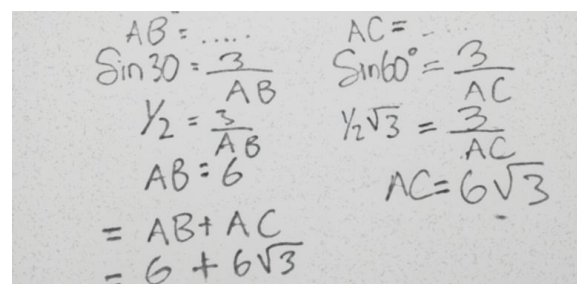 AB = .....
Sin 30 = 3/AB
1/2 = 3/AB
AB = 6
AC = .....
Sin 60° = 3/AC
1/2√3 = 3/AC
AC = 6√3
= AB + AC
= 6 + 6√3